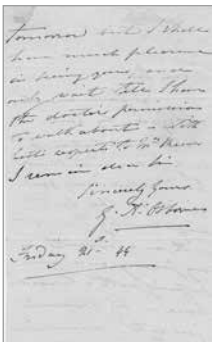 tomorrow but I shall
have much pleasure
in seeing you, and
only wait till I have
the doctor's permission
to walk about - with
best respects to Mrs
I remain dear Sir
Sincerely Yours
G. A. Osborne
Friday 21st